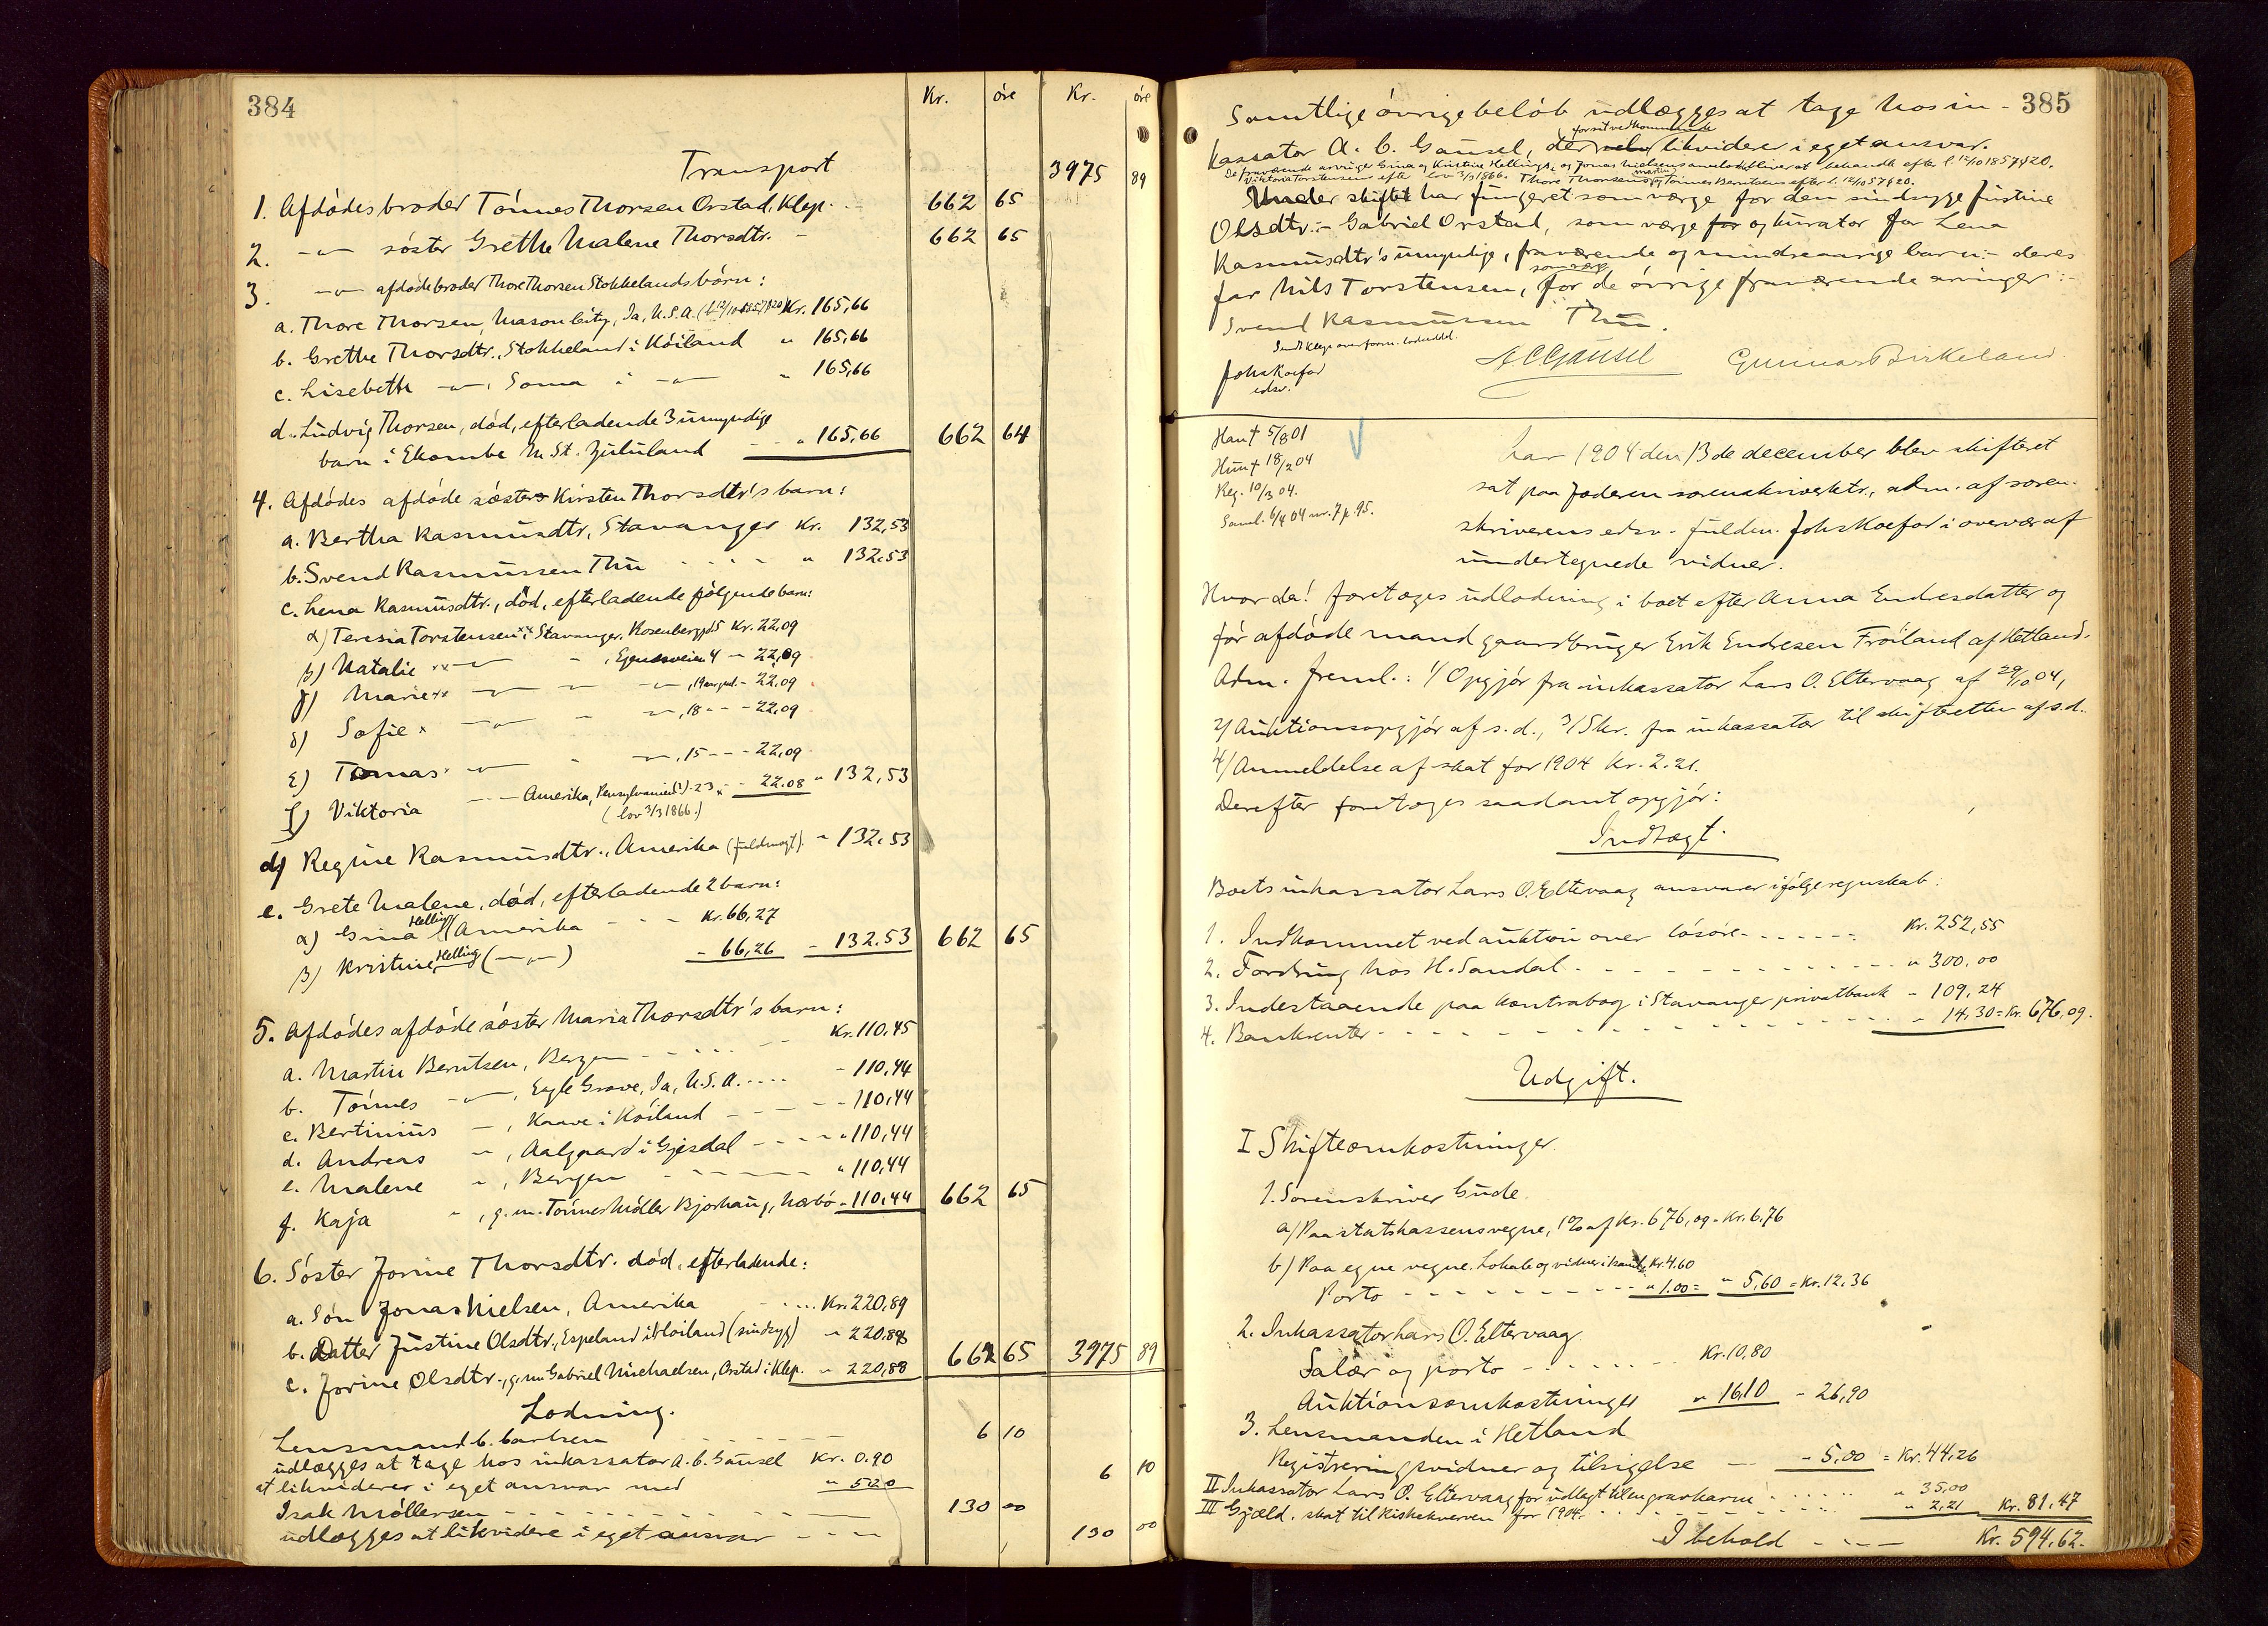 384
Kr. øre Kr. øre
Transport 3975 89
1. Afdødes broder Tønnes Thorsen Orstad, Klep. 662 65
2. -"- søster Grethe Malene Thorsdtr. - 662 65
3. -"- afdøde broder Thore Thorsen Stokkelands børn:
a. Thore Thorsen, Mason City, Ia, U.S.A. (l. 12/10 1857 § 20) Kr. 165,66
b. Grethe Thorsdtr., Stokkeland i Høiland " 165,66
c. Lisebeth -"-, Soma i -"- " 165,66
d. Ludvig Thorsen, død, efterladende 3 umyndige
barn i Ekombe M. St. Zululand - - " 165,66 662 64
4. Afdødes afdøde søster Kirsten Thorsdtr's barn:
a. Bertha Rasmusdtr, Stavanger Kr. 132,53
b. Svend Rasmussen Thu - - - - " 132,53
c. Lena Rasmusdtr., død, efterladende følgende barn:
α) Teresia Torstensen xx i Stavanger, Rosenberggd 5 Kr. 22,09
β) Natalie xx -"- - , Egenesveien 4 - 22,09
γ) Marie xx -"- - -"-, 19 aar gml. - 22,09
δ) Sofie x -"- - -"-, 18 - - - 22,09
ε) Tomas x -"- - -"-, 15 - - - 22,09
ζ) Viktoria -"- Amerika, Pensylvanien (?) - 23 - - 22.08 " 132,53
(lov 3/3 1866.)
d) Regine Rasmusdtr., Amerika (fuldmagt) - 132,53
e. Grete Malene, død, efterladende 2 barn:
α) Gina Helling (Amerika - - - Kr. 66,27
β) Kristine Helling (-"-) - 66,26 - 132.53 662 65
5. Afdødes afdøde søster Maria Thorsdtr's barn:
a. Martin Berntsen, Bergen - - - - - Kr. 110,45
b. Tønnes -"-, Eagle Grove, Ia, U.S.A. - 110,44
c. Bertinius -"-, Kaave i Høiland - - - - 110,44
d. Andreas -"-, Aalgaard i Gjesdal - - - " 110,44
e. Malene -"-, Bergen - - - - - " 110,44
f. Kaja -"-, g. m. Tønnes Møller Bjorhaug, Nærbø - 110,44 662 65
6. Søster Jorine Thorsdtr. død, efterladende:
a. Søn Jonas Nielsen, Amerika - .... Kr. 220,89
b. Datter Justine Olsdtr., Espeland i Høiland (sindsyg) " 220,88
c. Jorine Olsdtr., g. m. Gabriel Michaelsen, Orstad i Klep. " 220,88 662 65 3975 89
Lodning.
Lensmand C. Carlsen - - - - - 6 10
udlægges at tage hos inkassator A. C. Gausel Kr. 0.90
at likviderer i eget ansvar med " 5.20 6 10
Isak Møllersen - - - - - - 130 00
udlægges at likvidere i eget ansvar - - - - 130 00
385
Samtlige øvrige beløb udlægges at tage hos in-
kassator A. C. Gausel, der for sit vedkommende likviderer i eget ansvar.
De fraværende arvinger Gina og Kristine Hellings, og Jonas Nielsens arvelod bliver at behandle efter l. 12/10 1857 § 20.
Viktoria Torstensens efter lov 3/3 1866. Thore Thorsens, Martin og Tønnes Berntsens efter l. 12/10 57 § 20.
Under skiftet har fungeret som værge for den sindsyge Justine
Olsdtr.:- Gabriel Orstad, som værge for og kurator for Lena
Rasmusdtr's umyndige, fraværende og mindreaarige barn:- deres
far Nils Torstensen, som værge for de øvrige fraværende arvinger:-
Svend Rasmussen Thu.
Sendt Klep overform. loduddel.
Johs Koefod
edsv.
A. C. Gausel Gunnar Birkeland
Han † 5/8 01
Hun † 18/2 04
Reg. 10/3 04.
Saml. 6/4 04 nr. 7 p. 95.
Aar 1904 den 13de december blev skifteret
sat paa Jæderen sorenskriverktr., adm. af soren-
skriverens edsv. fuldm. Johs Koefod i overvær af
undertegnede vidner.
Hvor da! foretoges udlodning i boet efter Anna Endresdatter og
før afdøde mand gaardbruger Erik Endresen Frøiland af Hetland.
Adm. freml.: 1/ Opgjør fra inkassator Lars O. Eltervaag af 29/10 04,
2/ Auktionsopgjør af s. d., 3/ Skr. fra inkassator til skifteretten af s. d.
4/ Anmeldelse af skat for 1904 Kr. 2.21.
Derefter foretoges saadant opgjør:
Indtægt.
Boets inkassator Lars O. Eltervaag ansvarer ifølge regnskab:
1. Indkommet ved auktion over løsøre - - - - - - Kr. 252,55
2. Fordring hos H. Sandal - - - - - - - - " 300,00
3. Indestaaende paa kontrabog i Stavanger privatbank - 109,24
4. Bankrenter - - - - - - - - - - 14,30 = Kr. 676,09.
Udgift.
I Skifteomkostninger.
1. Sorenskriver Gude
a) Paa statskassens vegne, 1% af Kr. 676,09 - Kr. 6,76
b) Paa egne vegne. Lokale og vidner i saml. Kr. 4.60
Porto - - - - - - - - - " 1.00 = " 5,60 = Kr. 12,36
2. Inkassator Lars O. Eltervaag.
Salær og porto - - - - - - Kr. 10,80
Auktionsomkostninger " 16,10 - 26,90
3. Lensmanden i Hetland
Registreringsvidner og tilsigelse - - 5,00 = Kr. 44,26
II Inkassator Lars O. Eltervaag for udlagt til en gravkarm - - - " 35,00
III Gjæld, skat til Riskekverven for 1904. - - - - " 2,21 Kr. 81,47
I behold - - - - Kr. 594,62.